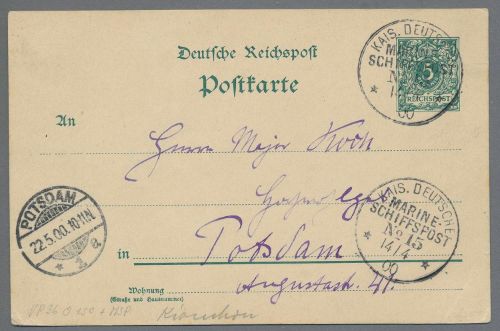 KAIS. DEUTSCHE
MARINE-
SCHIFFSPOST
No
* 14
00
5
REICHSPOST
Deutsche Reichspost
Postkarte
An
Herrn Major Koch
KAIS. DEUTSCHE
MARINE-
SCHIFFSPOST
No 15
* 14/4 *
00
POTSDAM
22.5.00.10-11N.
* 2 e
in Potsdam
Wohnung
(Straße und Hausnummer)
Augustastr. 41.
Kiautschou